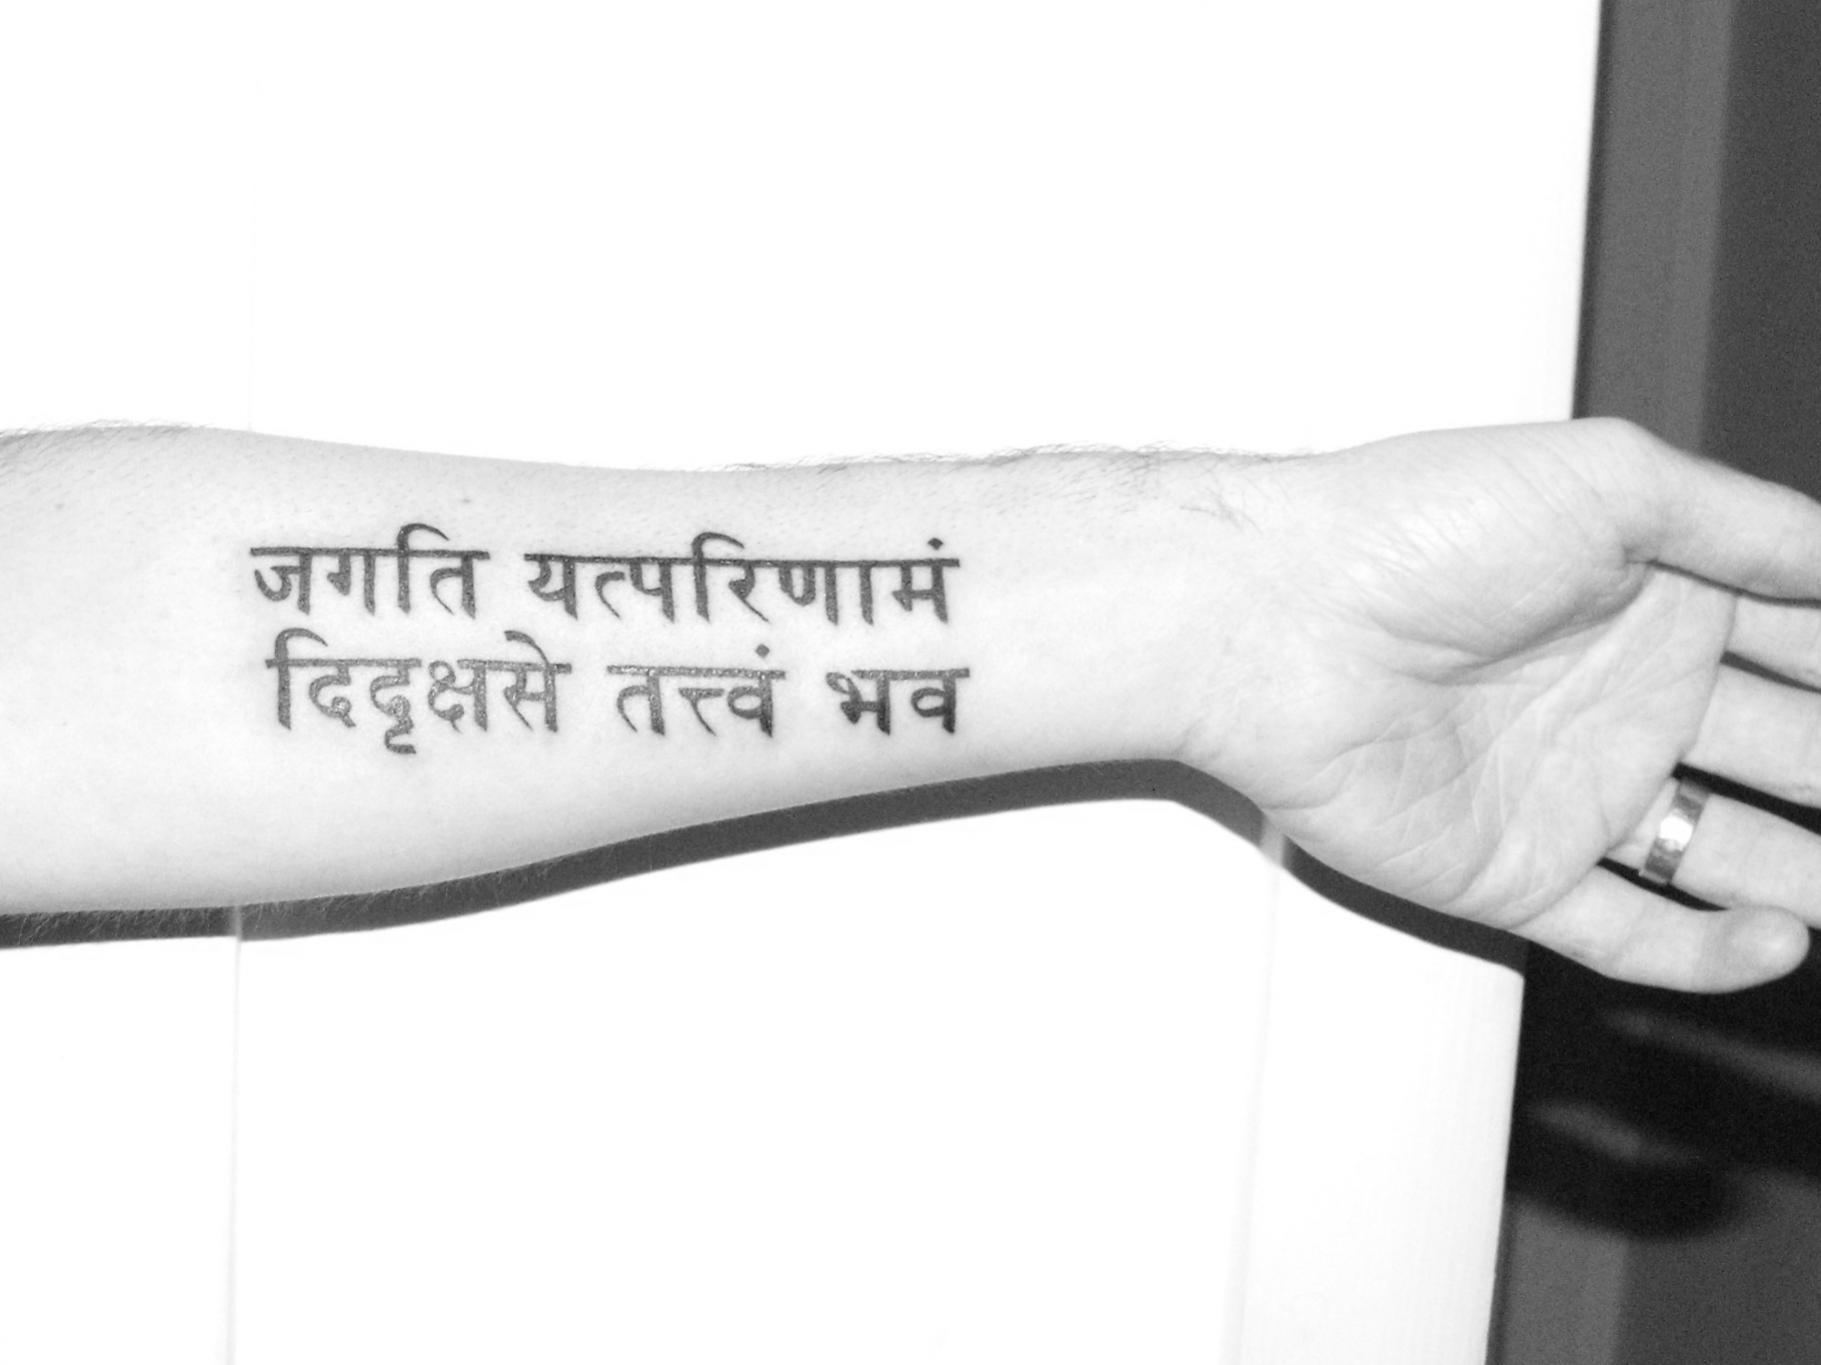 जगति यत्परिणामं
दिदृक्षसे तत्त्वं भव